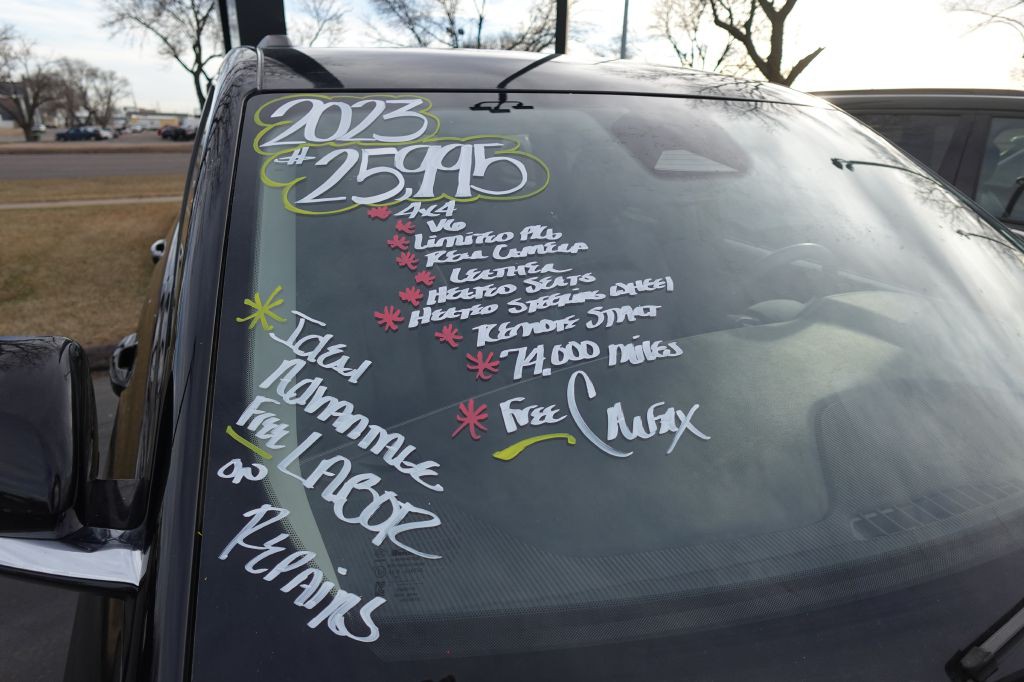 2023
$25,995
* 4x4
* V6
* Limited Pkg
* Rear Camera
* Leather
* Heated Seats
* Heated Steering Wheel
* Remote Start
* 74,000 miles
* Free Carfax
* Ideal
Advantage
Free LABOR
on
Repairs